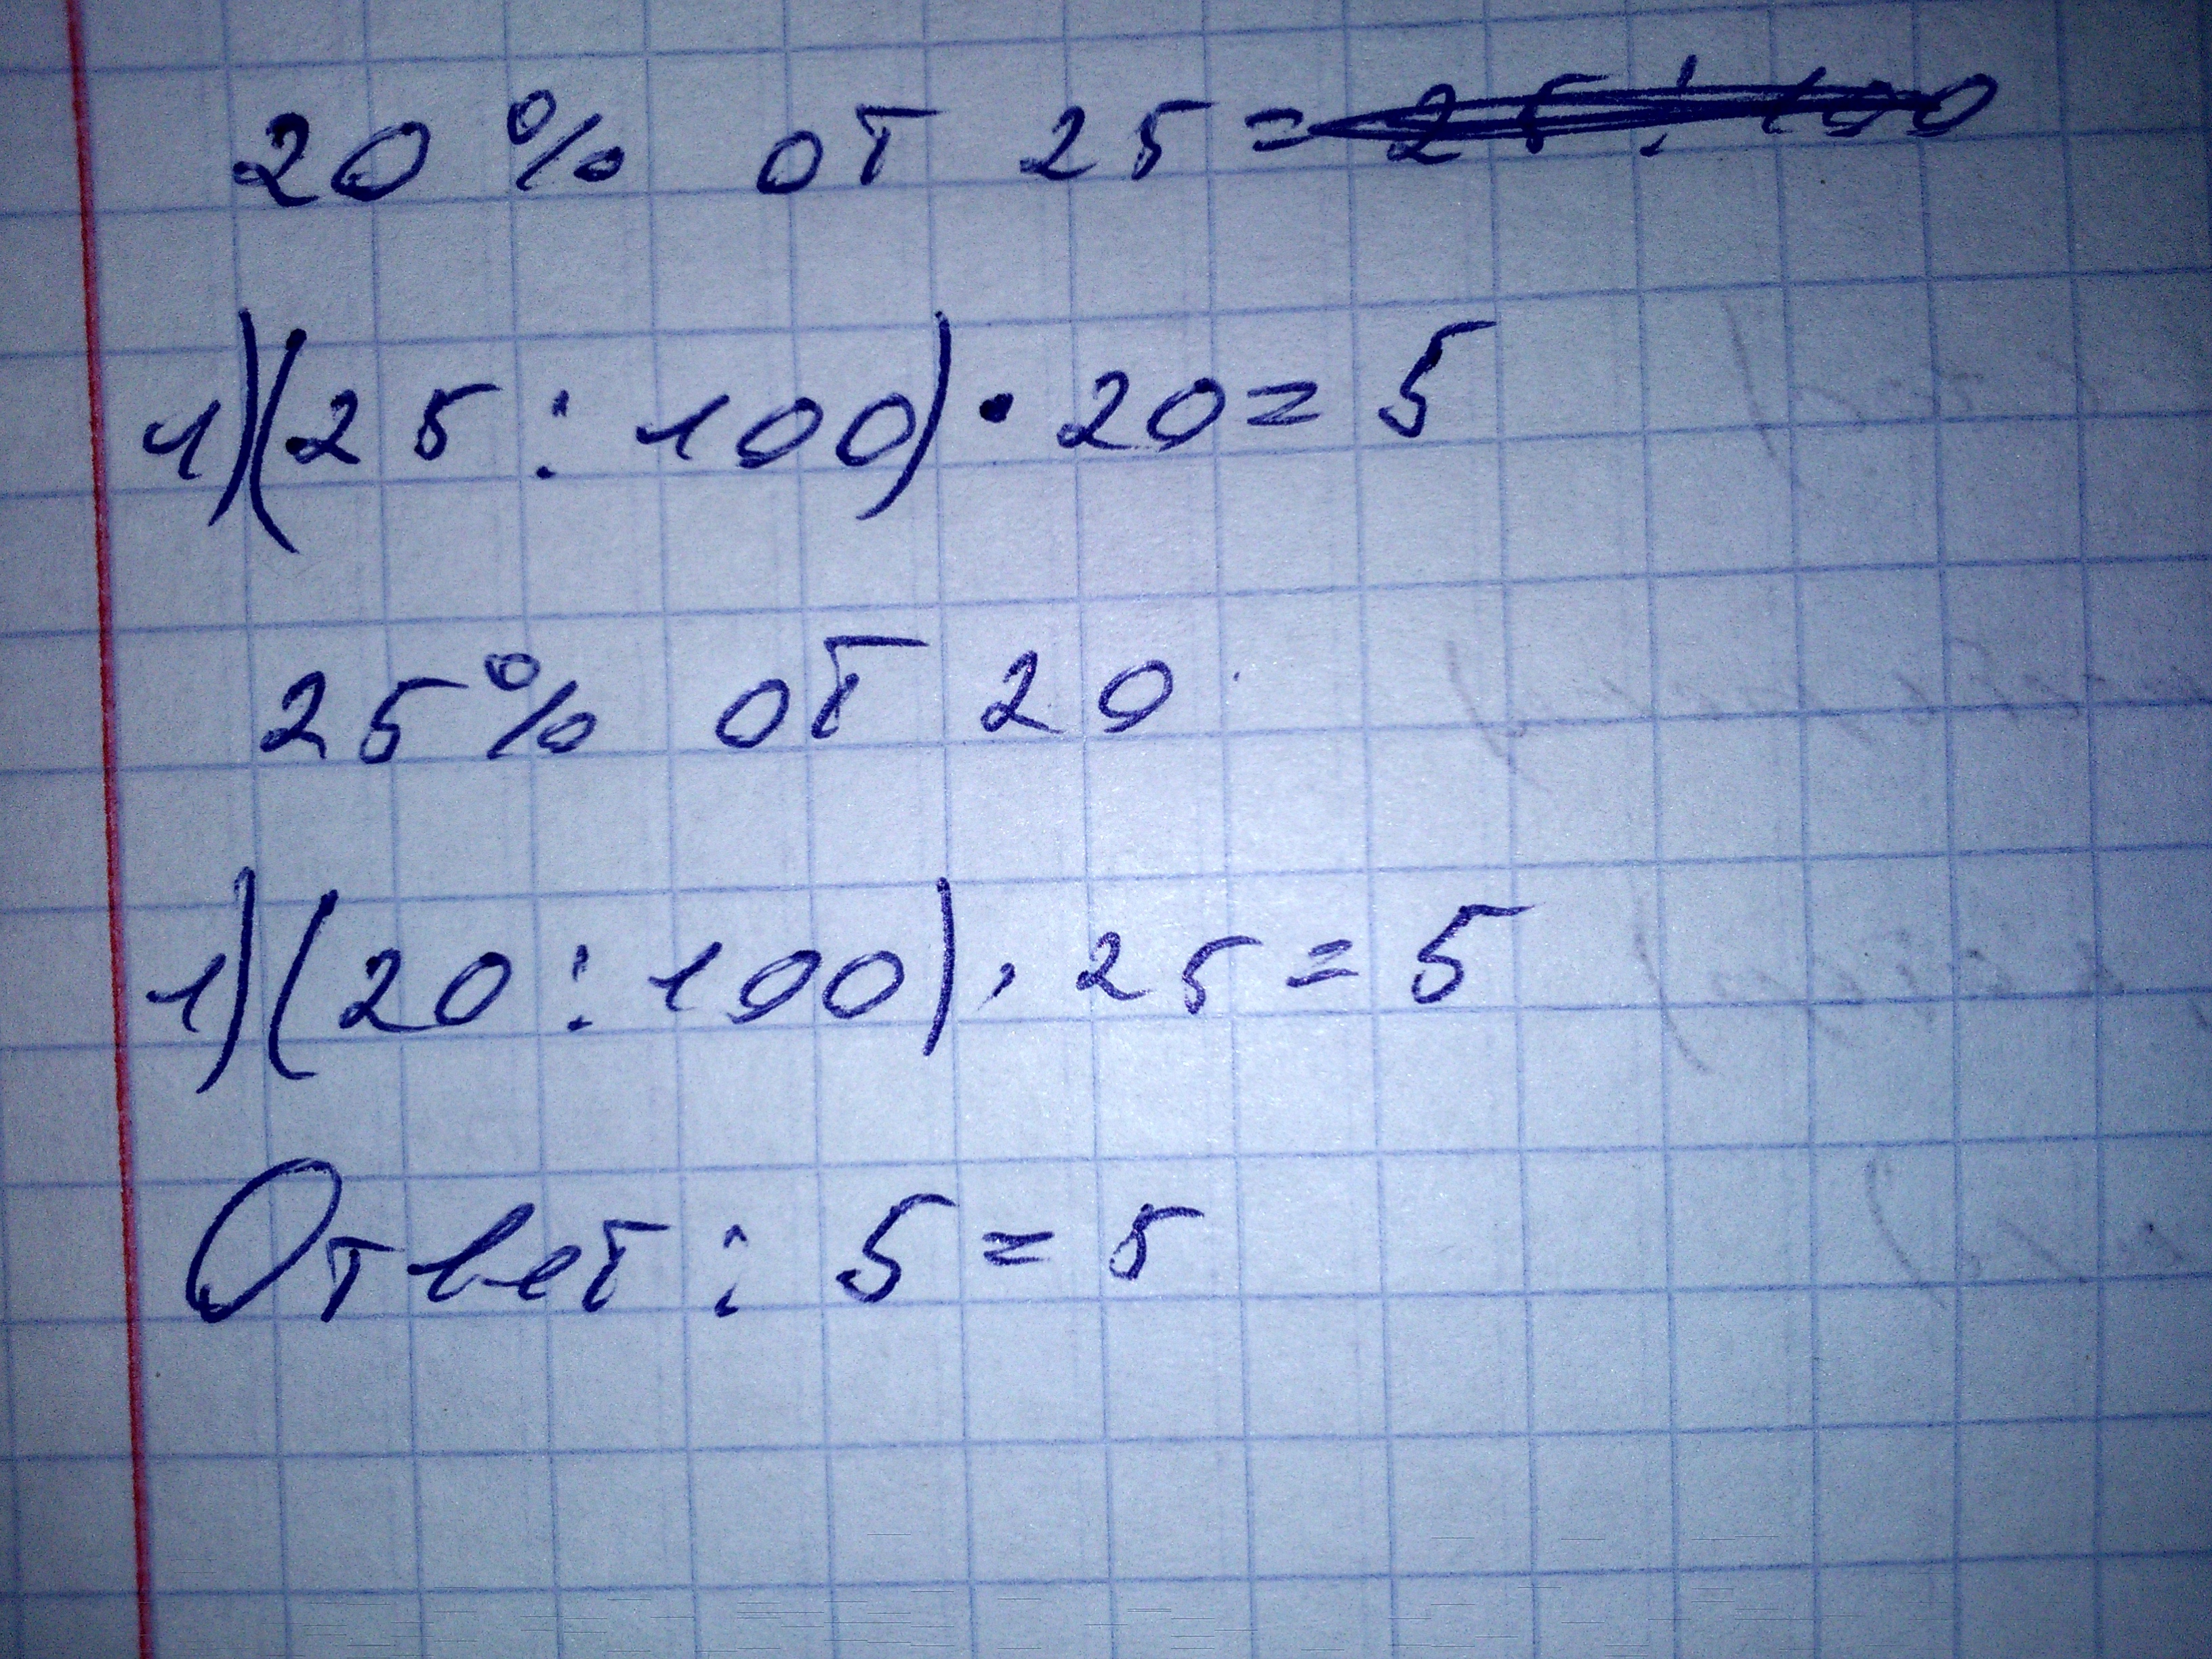 20 % от 25 =
1) (25 : 100) · 20 = 5
25 % от 20
1) (20 : 100) · 25 = 5
Ответ : 5 = 5